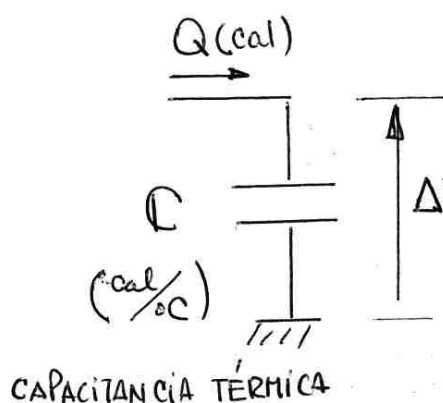 Q (cal)
ℂ
Δ
(cal/°C)
CAPACITANCIA TÉRMICA